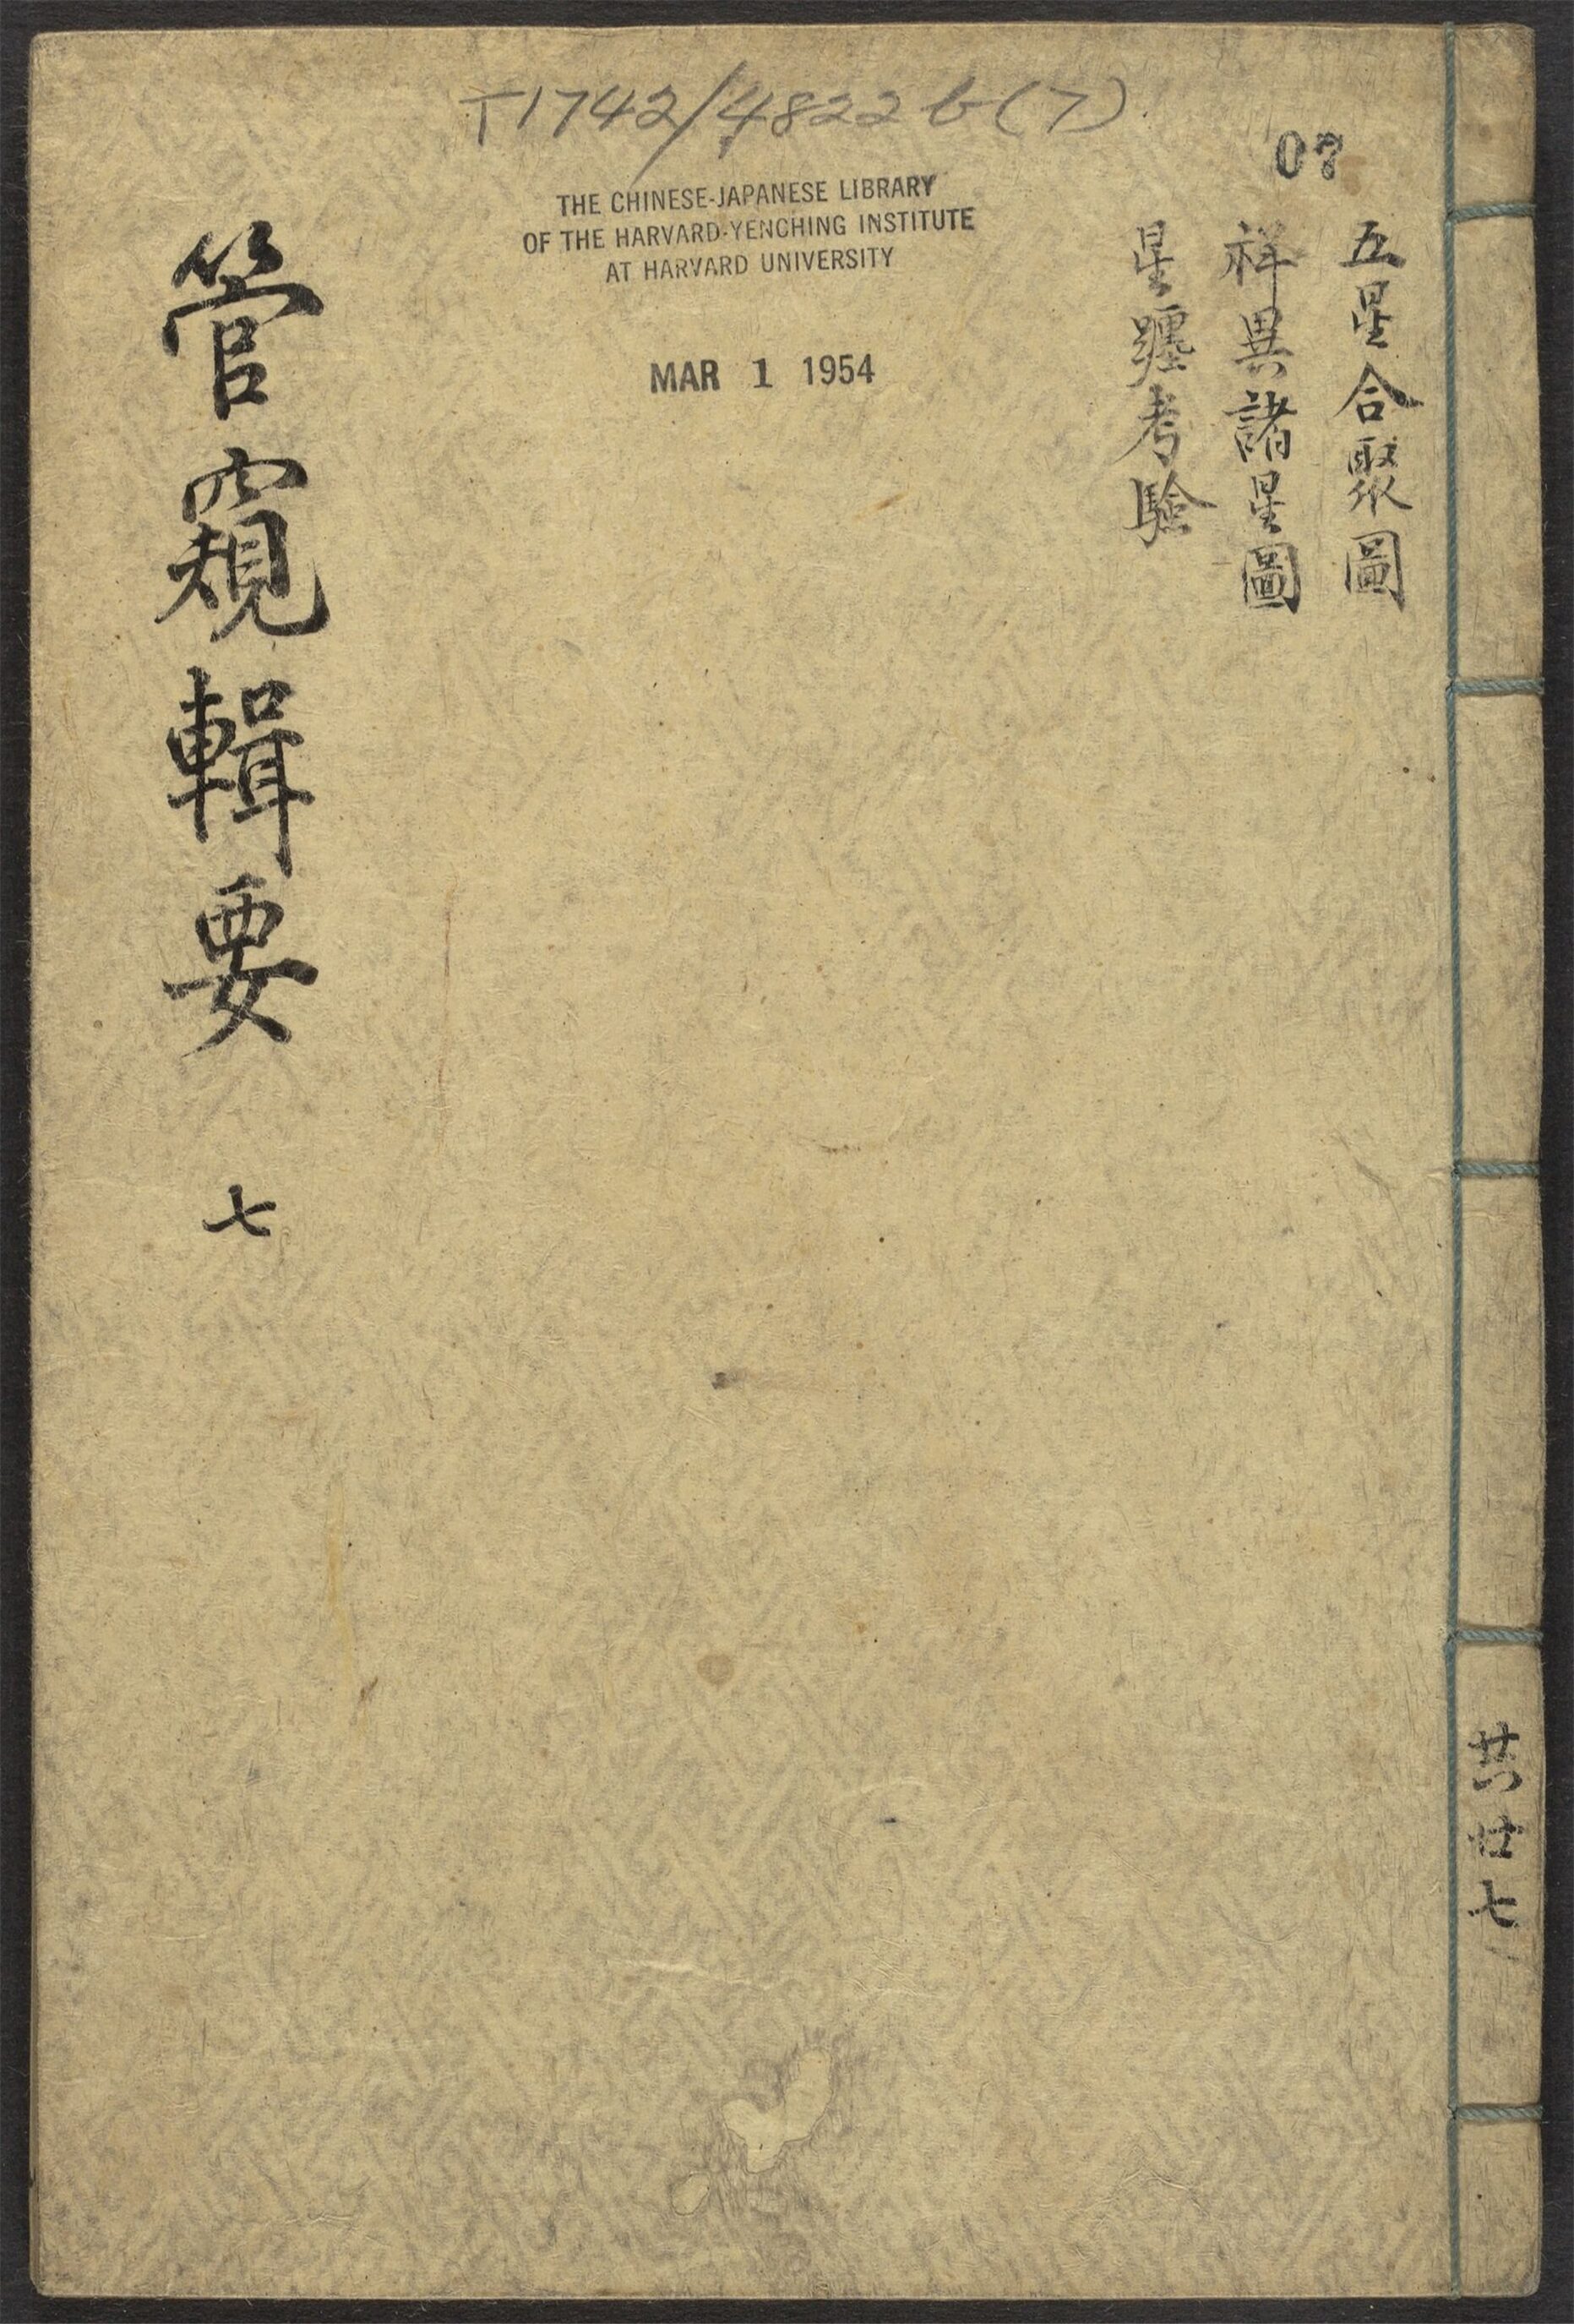 T1742/4822b(7)
07
THE CHINESE-JAPANESE LIBRARY
OF THE HARVARD-YENCHING INSTITUTE
AT HARVARD UNIVERSITY
MAR 1 1954
五星合聚圖
祥異諸星圖
星躔考驗
管窺輯要 七
共廿七